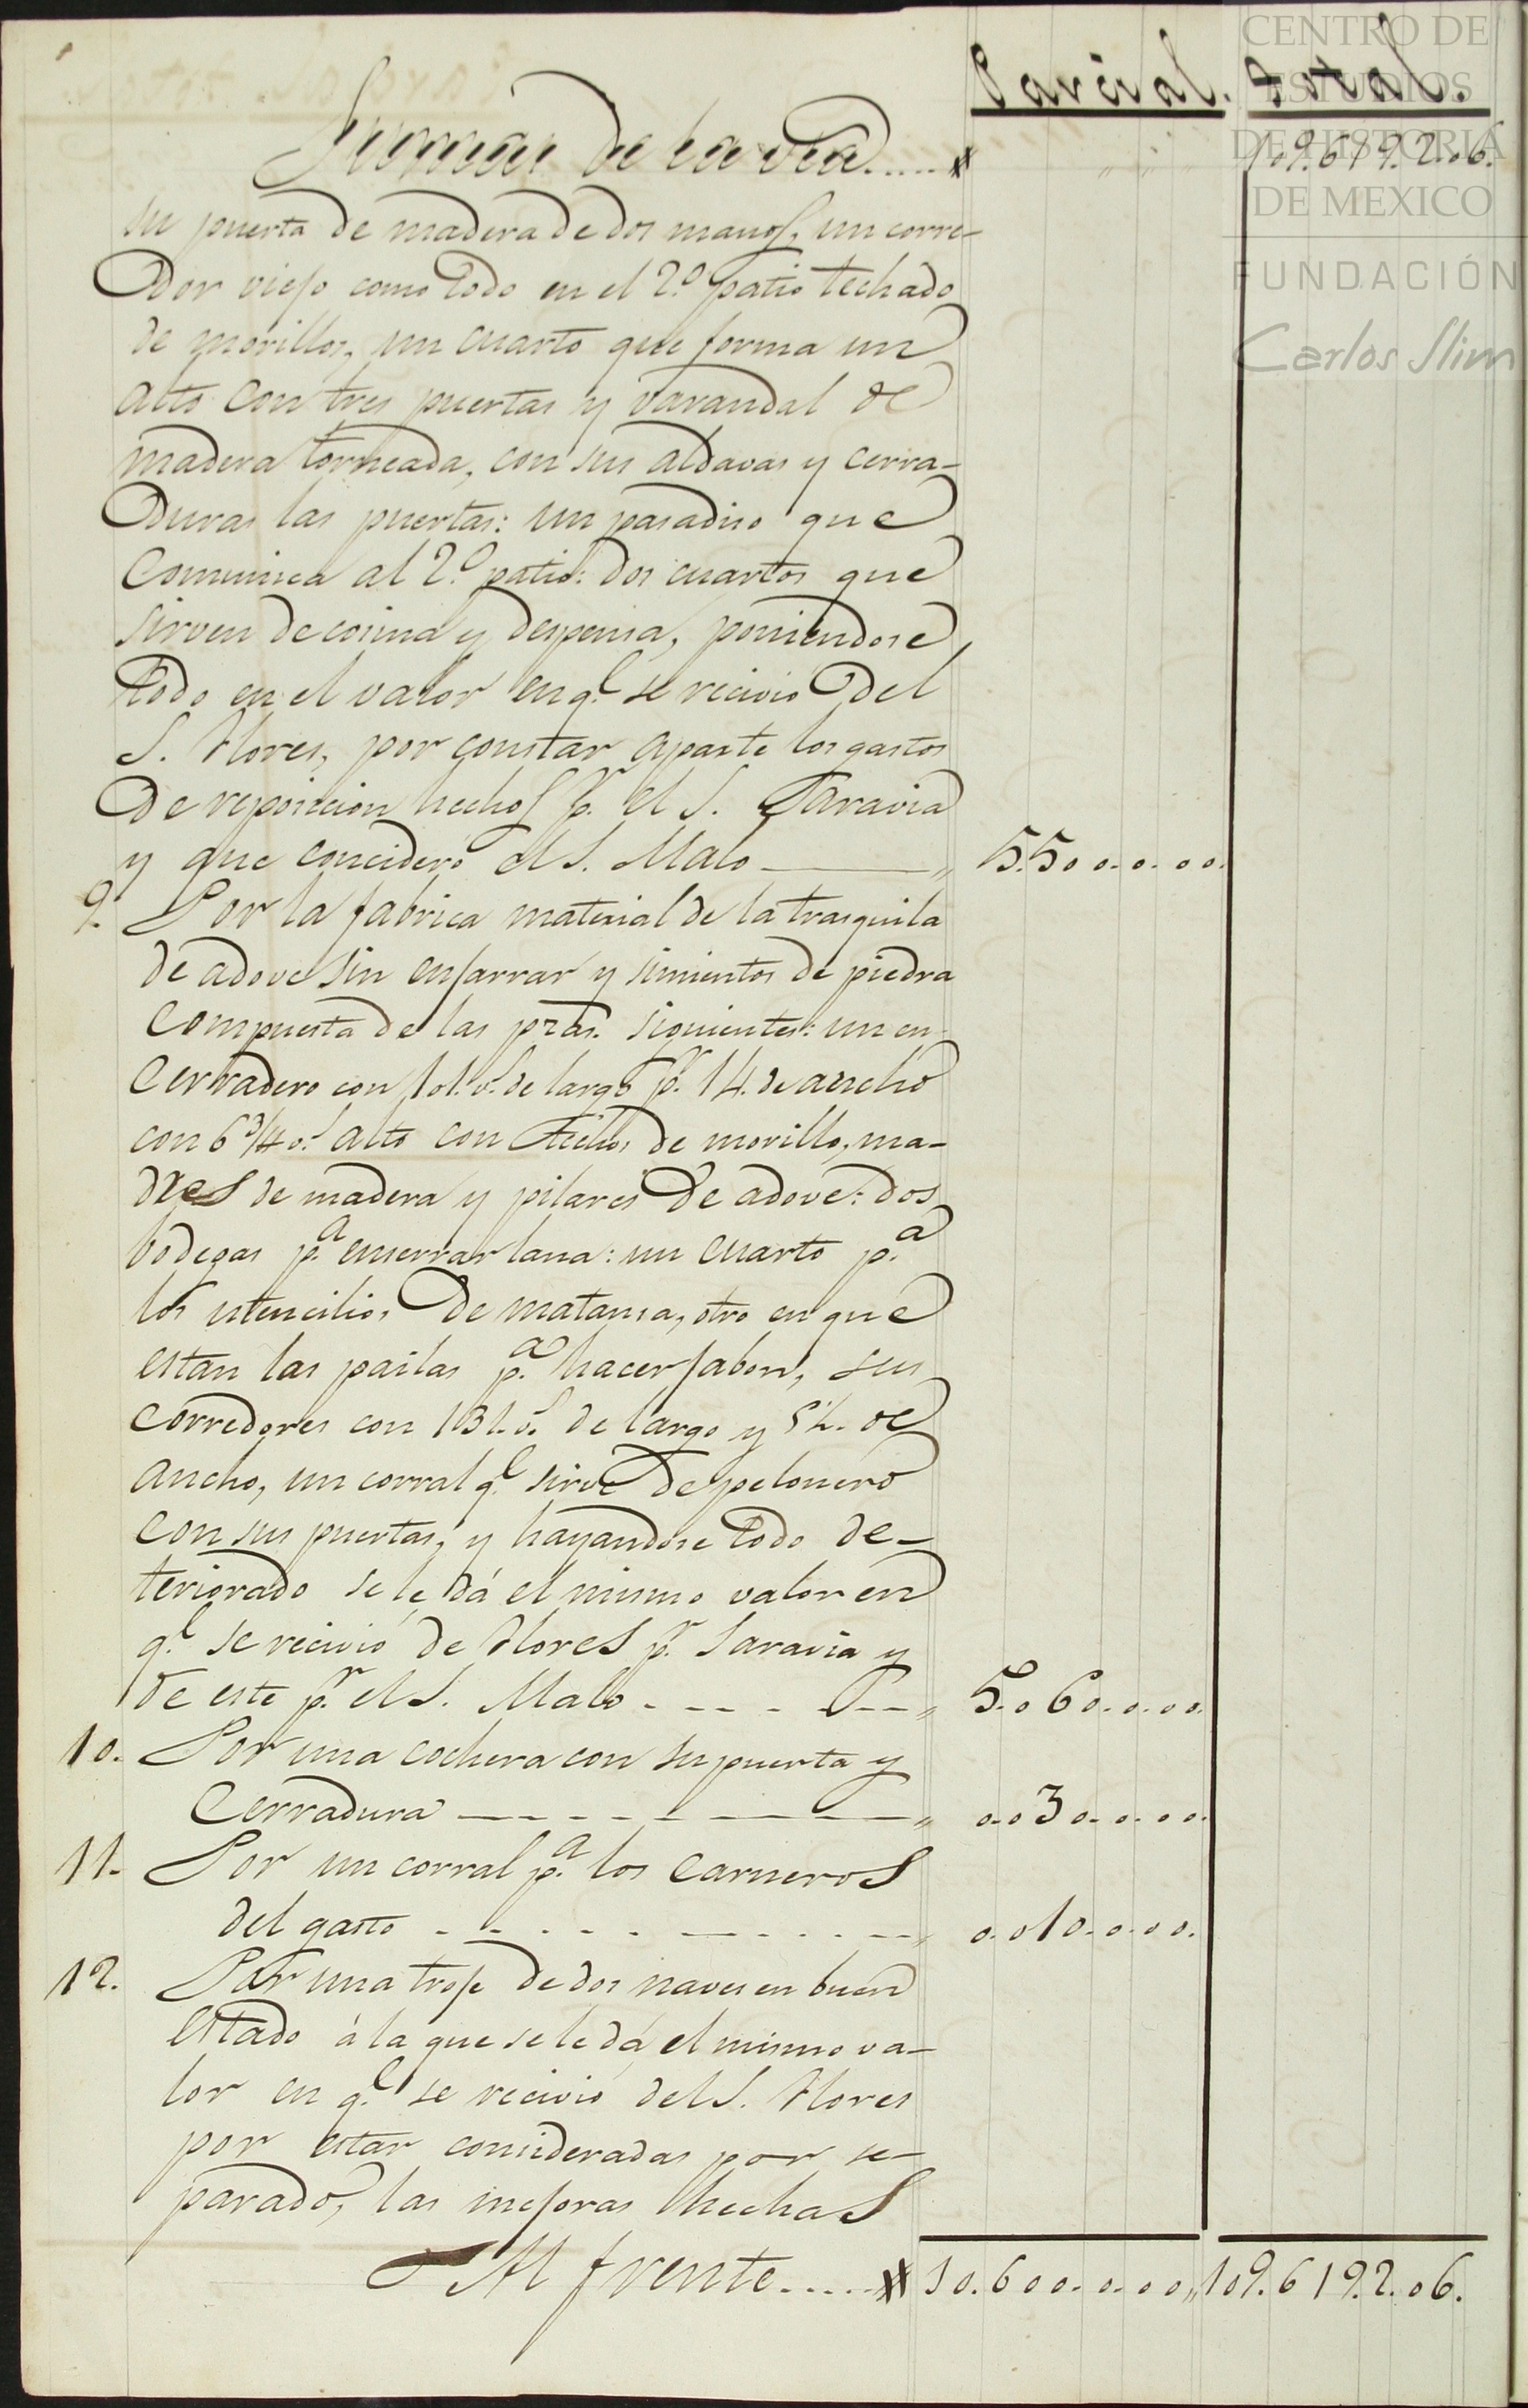 Parcial. Total.
Sumas de la vta.....
109.619.2.06.
su puerta de madera de dos manos, un corre-
dor viejo como todo en el 2.º patio techado
de morillos, un cuarto que forma un
alto con tres puertas y varandal de
madera torneada, con sus aldavas y cerra-
duras las puertas: un pasadiso que
comunica al 2.º patio: dos cuartos que
sirven de cosina y despensa, poniendose
todo en el valor en q.e se recivió del
S. Flores, por constar aparte los gastos
de reposicion hechos p.r el S. Saravia
y que concideró el S. Malo ——— 5.500.0.00.
9. Por la fabrica material de la trasquila
de adove sin enjarrar y simientos de piedra
compuesta de las pzas. siguientes: un en-
cerradero con 101. v.s de largo p.r 14. de ancho
con 6 3/4 v.s alto con techos de morillo, ma-
dres de madera y pilares de adove: dos
bodegas p.a enserrar lana: un cuarto p.a
los utencilios de matansa, otro en que
estan las pailas p.a hacer jabon, sus
corredores con 131. v.s de largo y 5 1/2. de
ancho, un corral q.e sirve de pelonero
con sus puertas, y hayandose todo de-
teriorado se le dá el mismo valor en
q.e se recivió de Flores p.r Saravia y
de este p.r el S. Malo - - - - - 5.060.0.00.
10. Por una cochera con su puerta y
cerradura — - - - - — 0.030.0.00.
11. Por un corral p.a los carneros
del gasto - - - - - — 0.010.0.00.
12. Por una troje de dos naves en buen
estado á la que se le dá el mismo va-
lor en q.e se recivió del S. Flores
por estar consideradas por se-
parado, las mejoras hechas
Al frente..... 10.600.0.00,, 109.619.2.06.
CENTRO DE
ESTUDIOS
DE HISTORIA
DE MEXICO
FUNDACIÓN
Carlos Slim